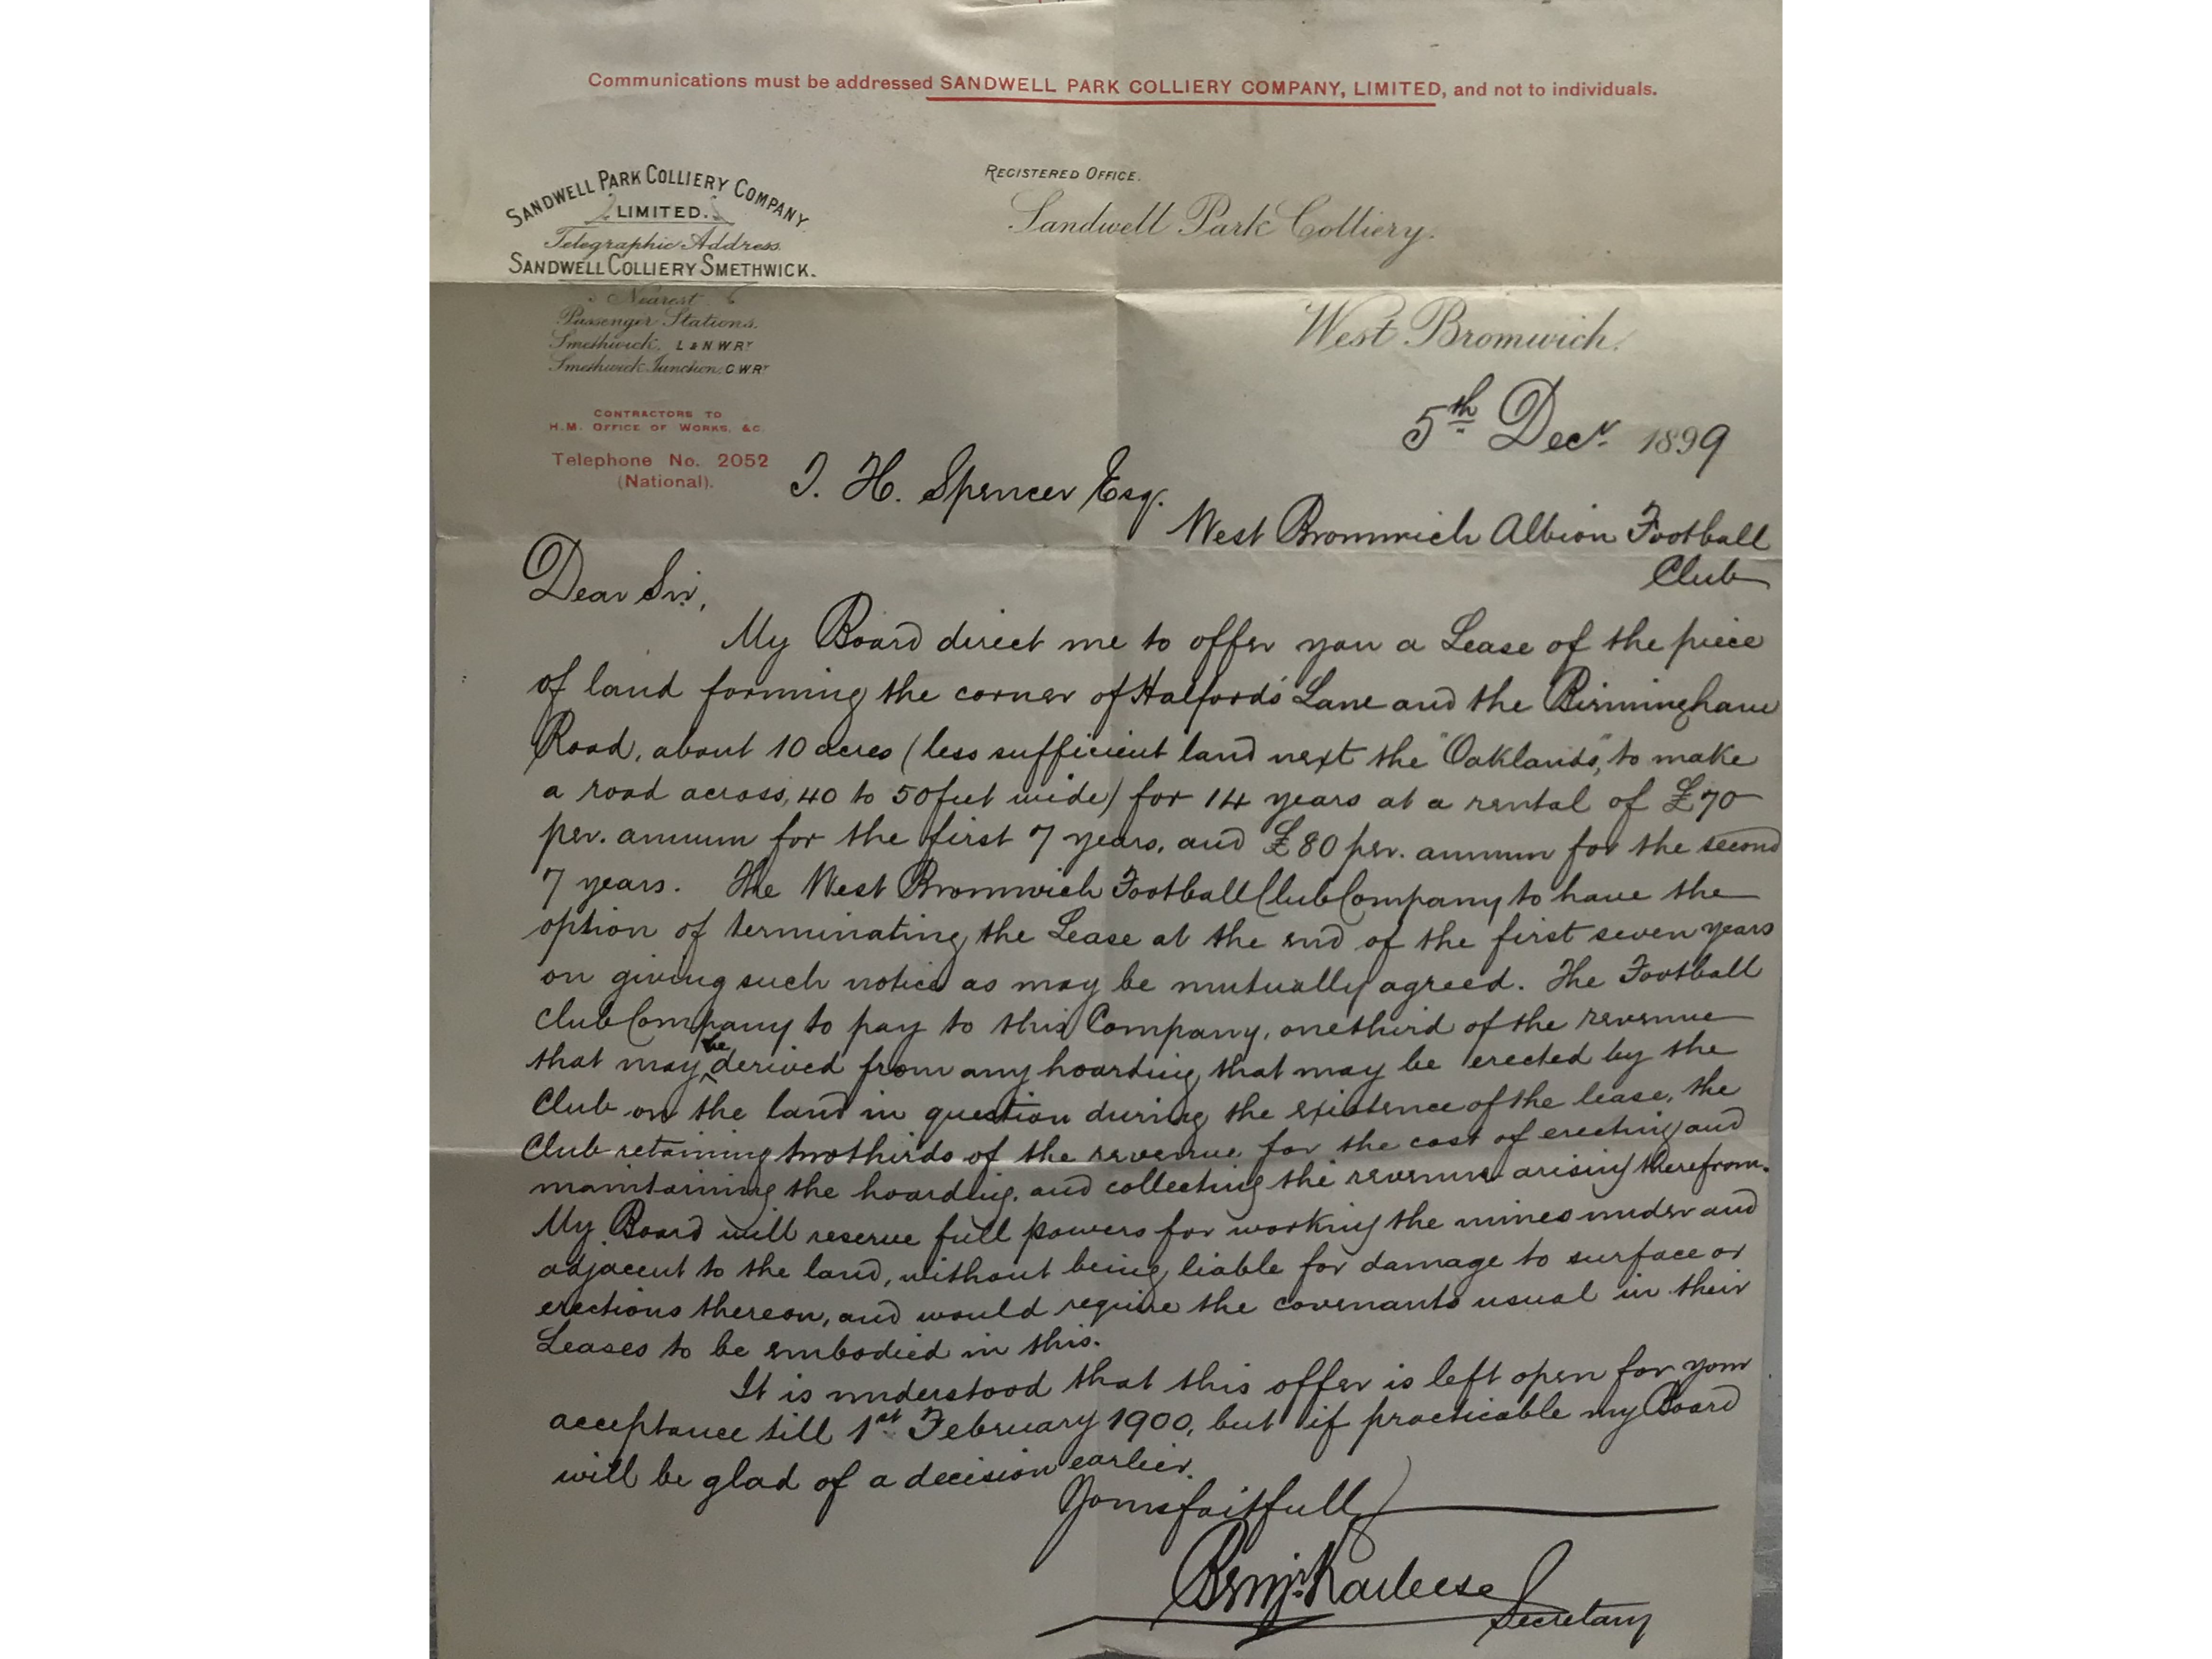 Communications must be addressed SANDWELL PARK COLLIERY COMPANY, LIMITED, and not to individuals.
SANDWELL PARK COLLIERY COMPANY
LIMITED.
Telegraphic Address.
SANDWELL COLLIERY SMETHWICK.
Nearest
Passenger Stations.
Smethwick. L & N W RY
Smethwick Junction. G W RY
CONTRACTORS TO
H.M. OFFICE OF WORKS, &C.
Telephone No. 2052
(National).
REGISTERED OFFICE.
Sandwell Park Colliery.
West Bromwich.
5th Decr. 1899
T. H. Spencer Esq.
West Bromwich Albion Football
Club
Dear Sir,
My Board direct me to offer you a Lease of the piece
of land forming the corner of Halford's Lane and the Birmingham
Road, about 10 acres (less sufficient land next the "Oaklands", to make
a road across, 40 to 50 feet wide) for 14 years at a rental of £70
per. annum for the first 7 years, and £80 per. annum for the second
7 years. The West Bromwich Football Club Company to have the
option of terminating the Lease at the end of the first seven years
on giving such notice as may be mutually agreed. The Football
Club Company to pay to this Company, one third of the revenue
that may be derived from any hoarding that may be erected by the
Club on the land in question during the existence of the lease, the
Club retaining two thirds of the revenue for the cost of erecting and
maintaining the hoarding, and collecting the revenue arising therefrom.
My Board will reserve full powers for working the mines under and
adjacent to the land, without being liable for damage to surface or
erections thereon, and would require the covenants usual in their
Leases to be embodied in this.
It is understood that this offer is left open for your
acceptance till 1st February 1900, but if practicable my Board
will be glad of a decision earlier.
Yours faithfully
Benjn.
Secretary